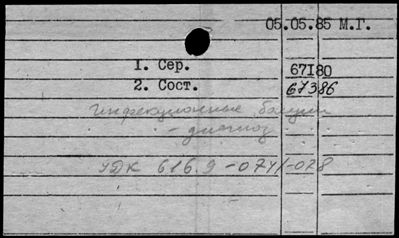 05.05.85 М.Г.
1. Сер. 67180
2. Сост. 67386
Инфекционные болезни
- диагноз
УДК 616.9-074/-078